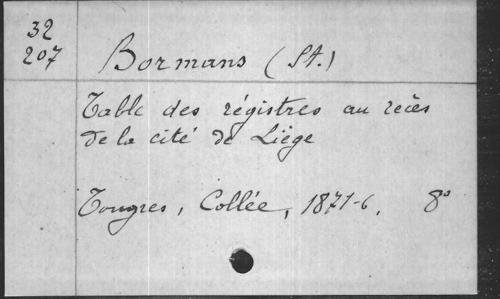 32
207
Bormans (St.)
Table des régistres au recès
de la cité de Liége
Tongres, Collée, 1871-6. 8°